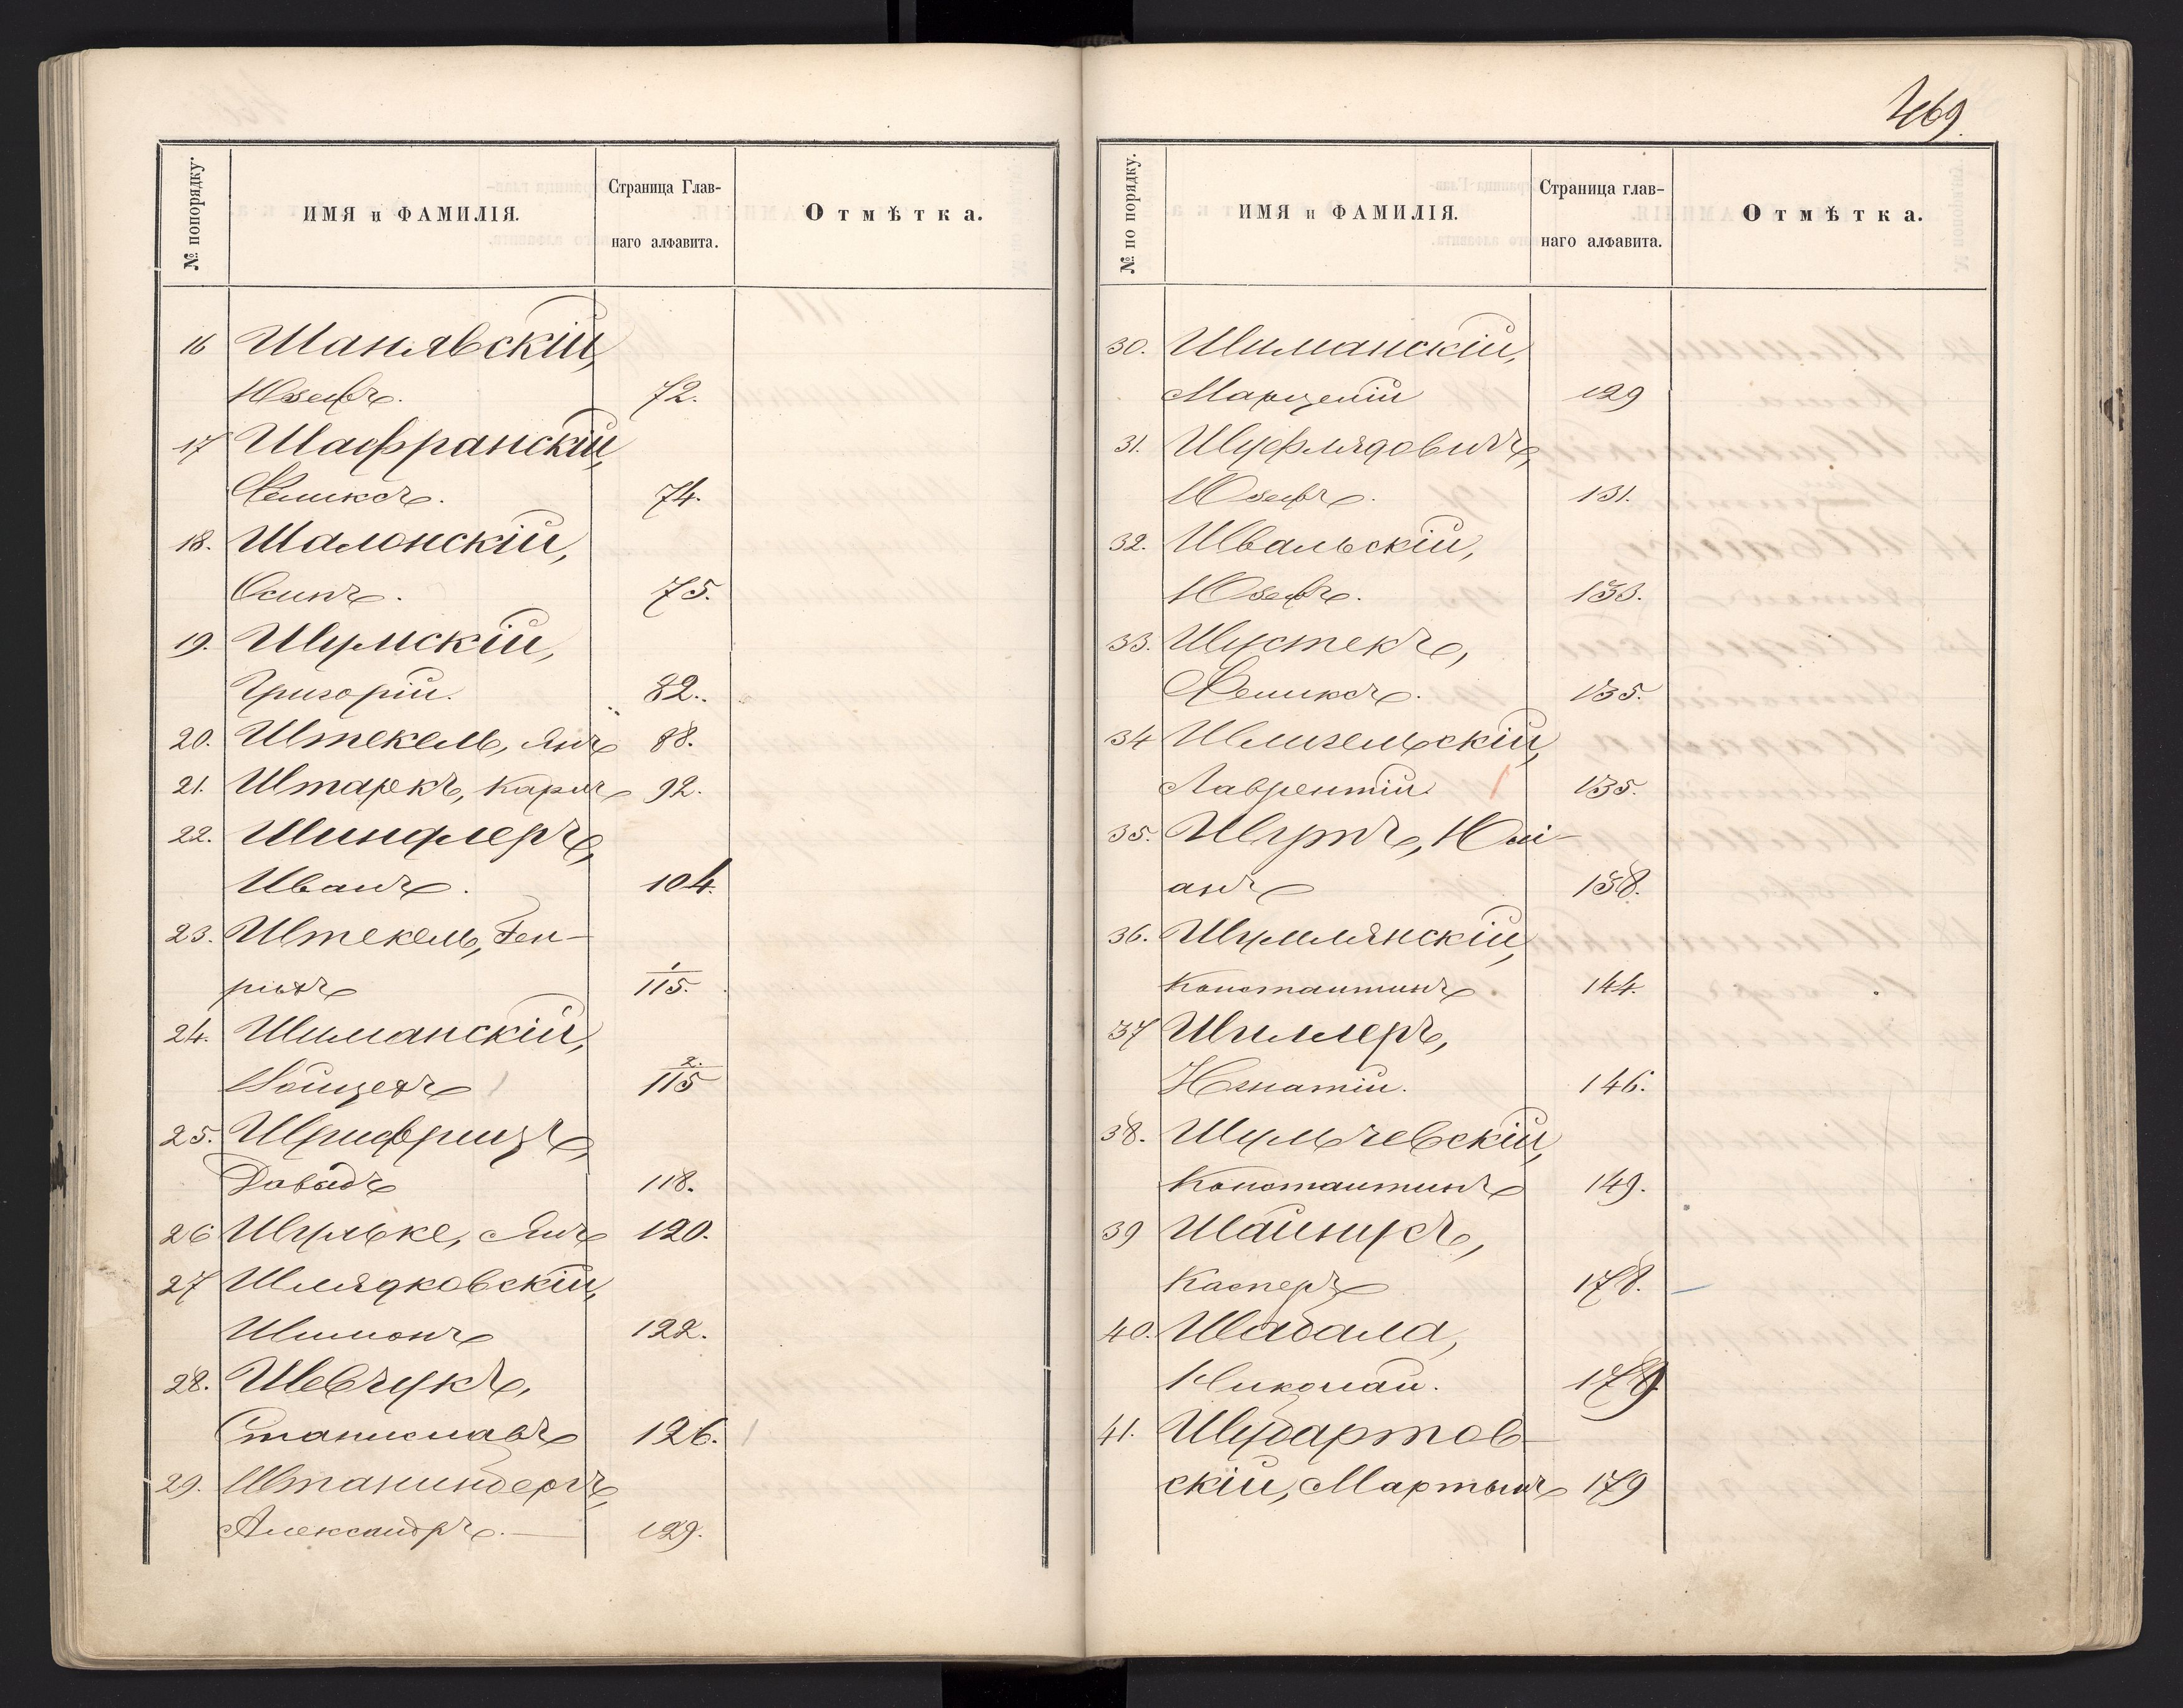 469.
№ попорядку.
ИМЯ и ФАМИЛІЯ.
Страница Глав-
наго алфавита.
Отмѣтка.
16 Шанявскій,
Юзефъ. 72.
17 Шафранскій,
Феликсъ. 74.
18. Шалонскій,
Осипъ. 75.
19. Шумскій,
Григорій. 82.
20. Штекель, Янъ 88.
21. Штаркъ, Карлъ 92.
22. Шиндлеръ,
Иванъ. 104.
23. Штекель, Ген-
рихъ 1/115.
24. Шиманскій,
Войцехъ 2./115
25. Шрифрицъ,
Давидъ 118.
26 Шульке, Янъ 120.
27 Шлядковскій,
Шимонъ 122.
28. Шевчукъ,
Станиславъ 126.
29. 
Александръ. — 129.
№ по порядку.
ИМЯ и ФАМИЛІЯ.
Страница глав-
наго алфавита.
Отмѣтка.
30. Шиманскій,
Марцелій 129
31. Шуфлядовичъ,
Юзефъ. 131.
32. Швальскій,
Юзефъ. 133.
33. Шустекъ,
Феликсъ. 135.
34 Шлигельскій,
Лаврентій. 135.
35. Шуртъ, Юлі-
анъ 138.
36. Шумлянскій,
Константинъ. 144.
37 Шиллеръ,
Игнатій. 146.
38. Шульчевскій,
Константинъ 149.
39 Шайнусъ,
Касперъ 178.
40. Шабала,
Николай. 179
41. Шубартов-
скій, Мартынъ 179